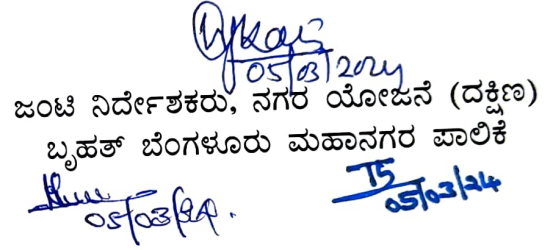 05/03/2024
ಜಂಟಿ ನಿರ್ದೇಶಕರು, ನಗರ ಯೋಜನೆ (ದಕ್ಷಿಣ)
ಬೃಹತ್ ಬೆಂಗಳೂರು ಮಹಾನಗರ ಪಾಲಿಕೆ
05/03/24
05/03/24